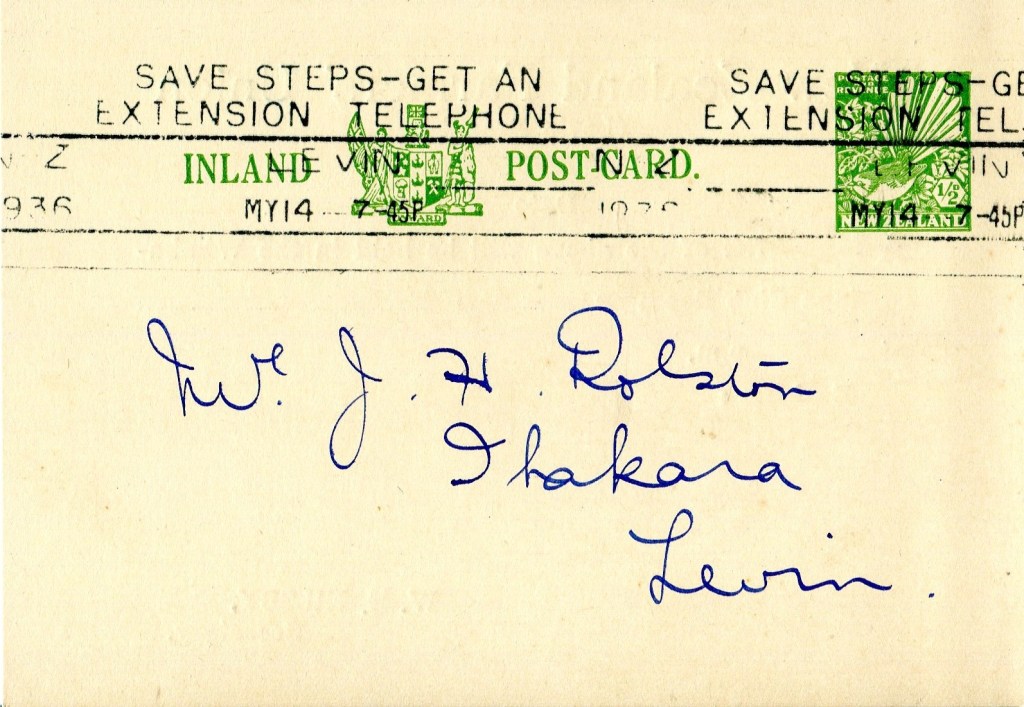 SAVE STEPS-GET AN
EXTENSION TELEPHONE
SAVE STEPS-GE
EXTENSION TEL
POSTAGE
REVENUE
N Z
LEVIN
N Z
LEVIN
INLAND POST CARD.
1/2D
1936
MY14 7-45P
1936
MY14 7-45P
NEW ZEALAND
Mr. J. H. Rolston
Ihakara
Levin.